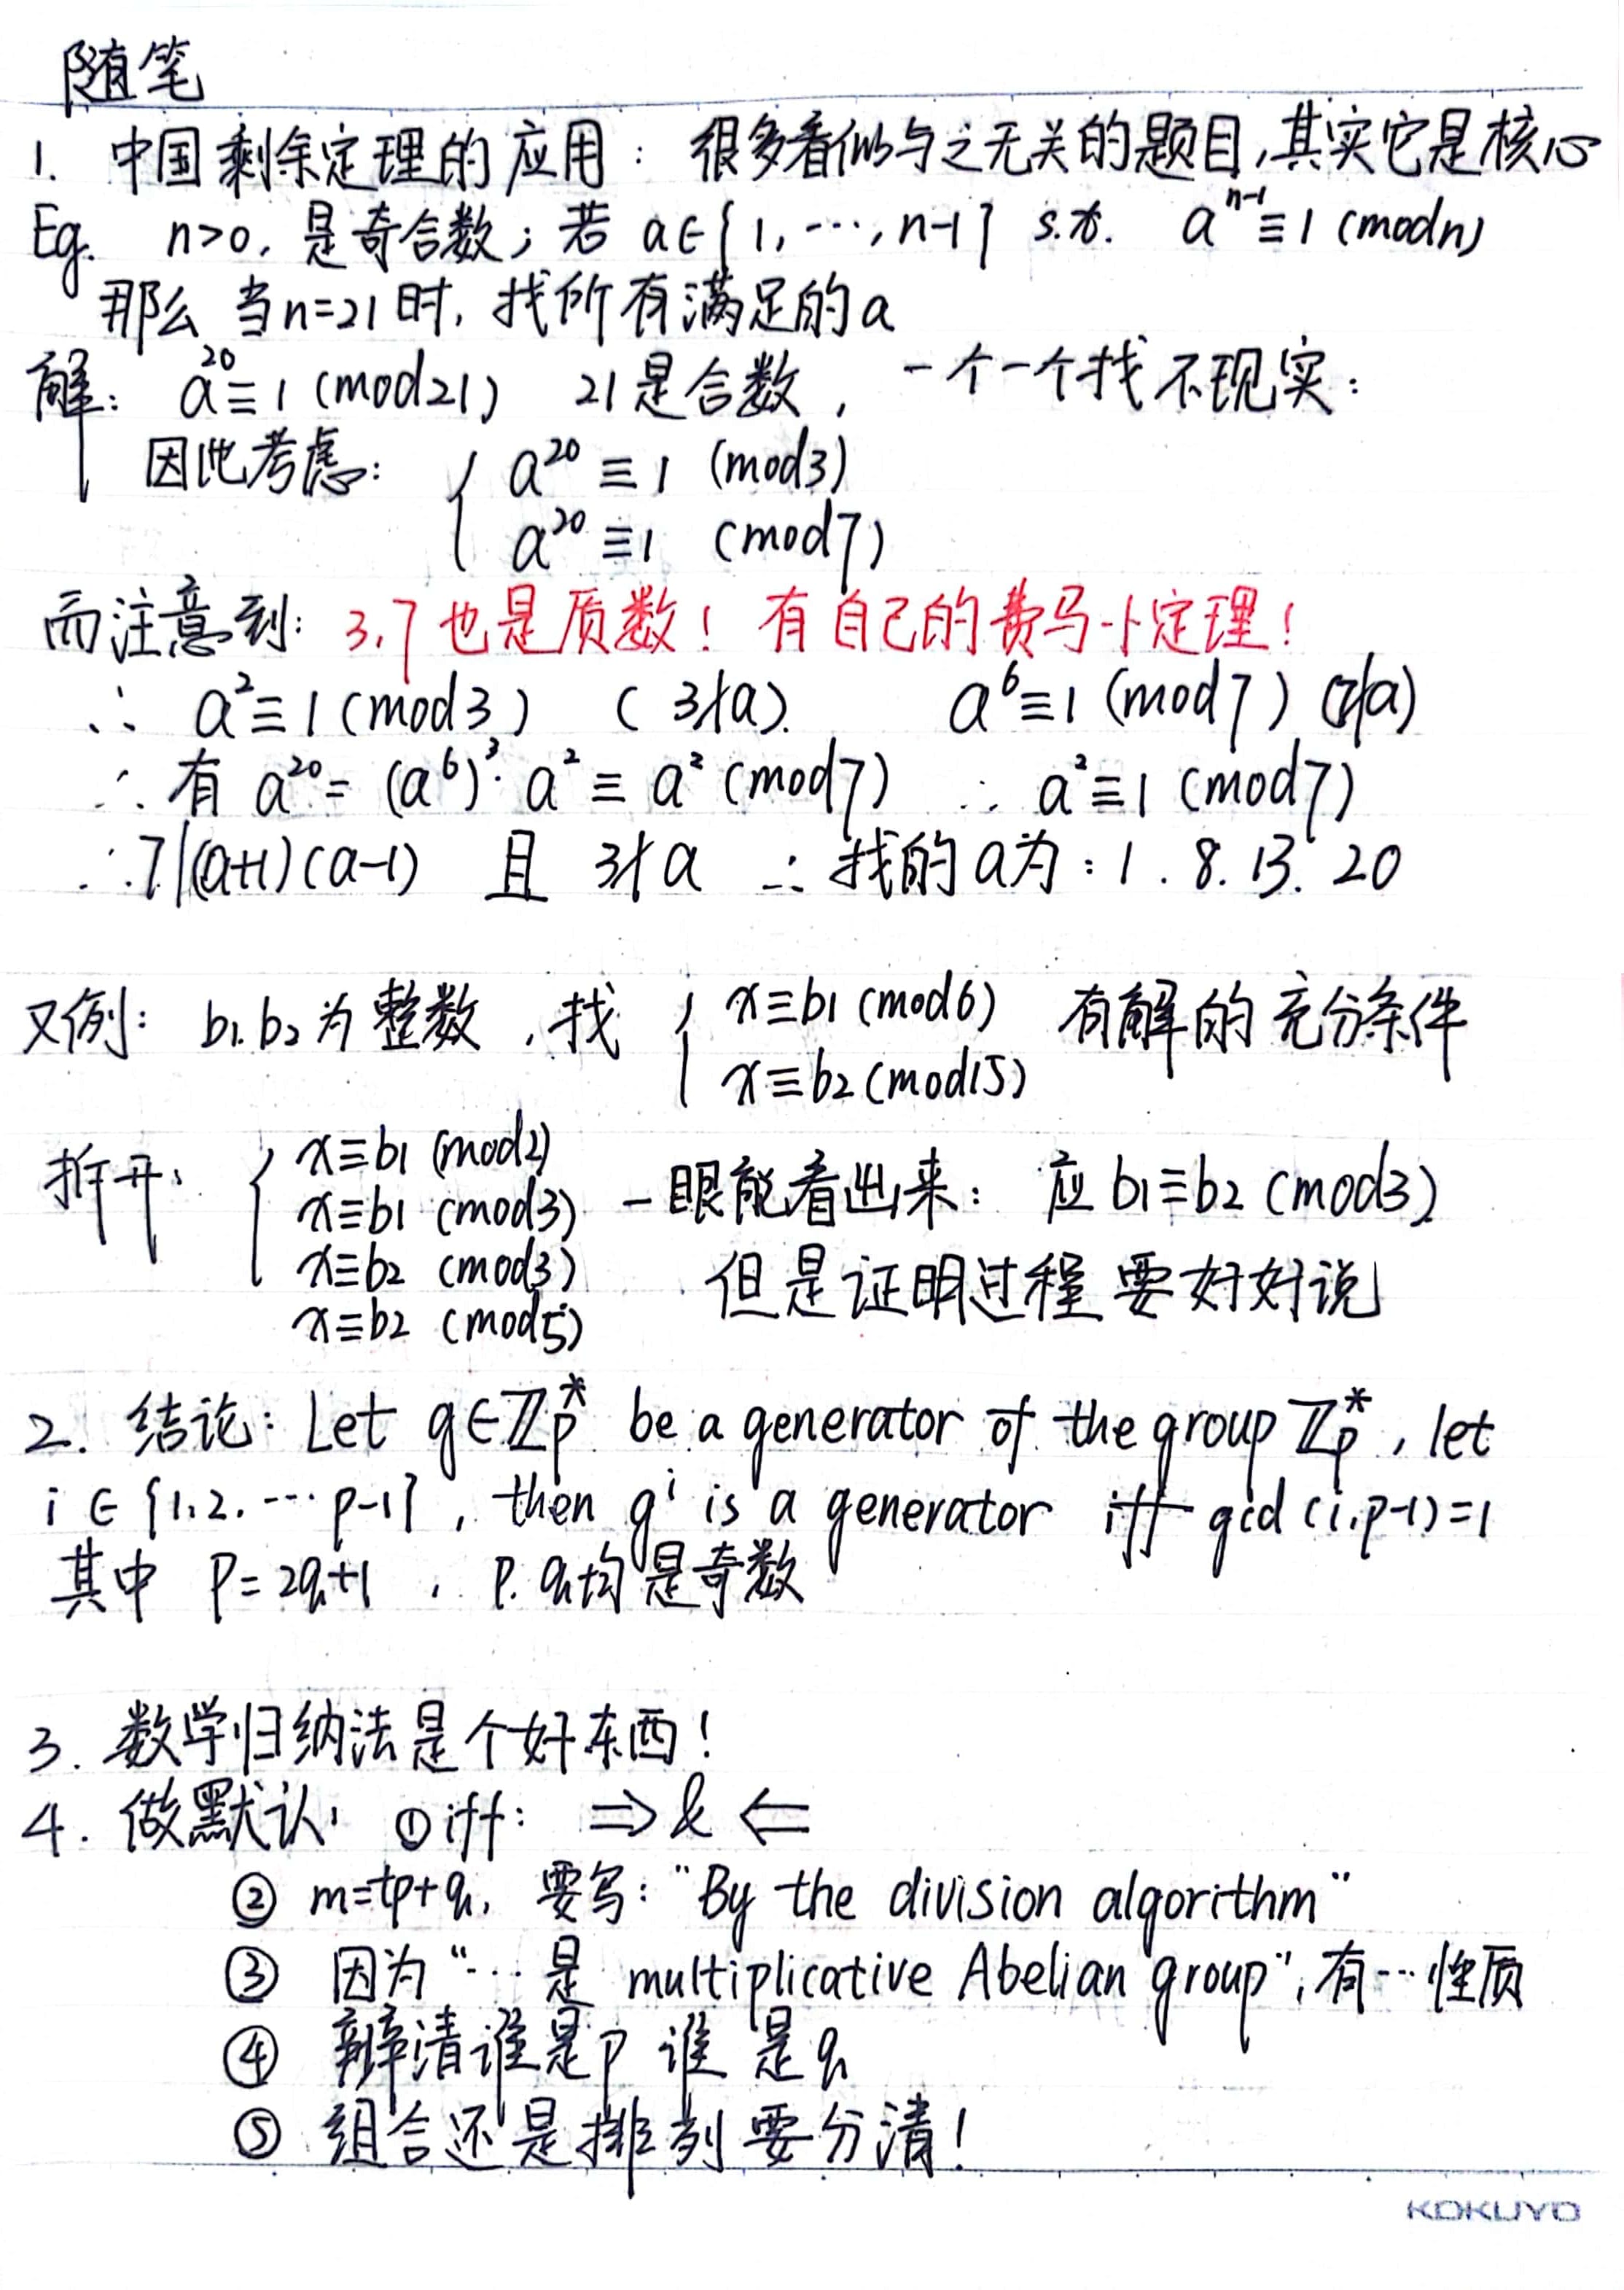 随笔
1. 中国剩余定理的应用：很多看似与之无关的题目,其实它是核心
Eg. n>0, 是奇合数；若 a∈{1,…,n-1} s.t. aⁿ⁻¹≡1 (mod n)
那么当n=21时, 找所有满足的a
解： a²⁰≡1 (mod21) 21是合数, 一个一个找不现实：
因此考虑： { a²⁰ ≡ 1 (mod3)
a²⁰ ≡ 1 (mod7)
而注意到：3,7也是质数！有自己的费马小定理！
∴ a²≡1 (mod3) (3∤a). a⁶≡1 (mod7) (7∤a)
∴ 有 a²⁰ = (a⁶)³·a² ≡ a² (mod7) ∴ a²≡1 (mod7)
∴ 7|(a+1)(a-1) 且 3∤a ∴ 找的a为：1. 8. 13. 20
又例： b₁.b₂为整数, 找 { x≡b₁ (mod6) 有解的充分条件
x≡b₂ (mod15)
拆开： { x≡b₁ (mod2)
x≡b₁ (mod3) 一眼能看出来： 应 b₁≡b₂ (mod3)
x≡b₂ (mod3) 但是证明过程要好好说
x≡b₂ (mod5)
2. 结论： Let g∈ℤp* be a generator of the group ℤp*, let
i ∈ {1,2,…p-1}, then gⁱ is a generator iff gcd(i,p-1)=1
其中 P=2q+1 , p.q均是奇数
3. 数学归纳法是个好东西！
4. 做默认： ① iff： ⇒ & ⇐
② m=tp+q, 要写："By the division algorithm"
③ 因为"…是 multiplicative Abelian group", 有…性质
④ 辨清谁是p 谁是q
⑤ 组合还是排列要分清！
KOKUYO